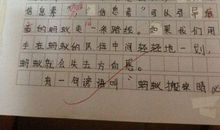 信息素
信息素
面的蚂蚁走一条路线。如果我们用
手在蚂蚁的队伍中间轻轻地一划,
蚂蚁就会失去方向感。
有一句谚语叫:"蚂蚁搬家晴必